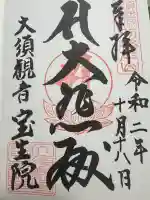 奉拝
令和二年
十月十八日
大悲殿
大須観音
宝生院